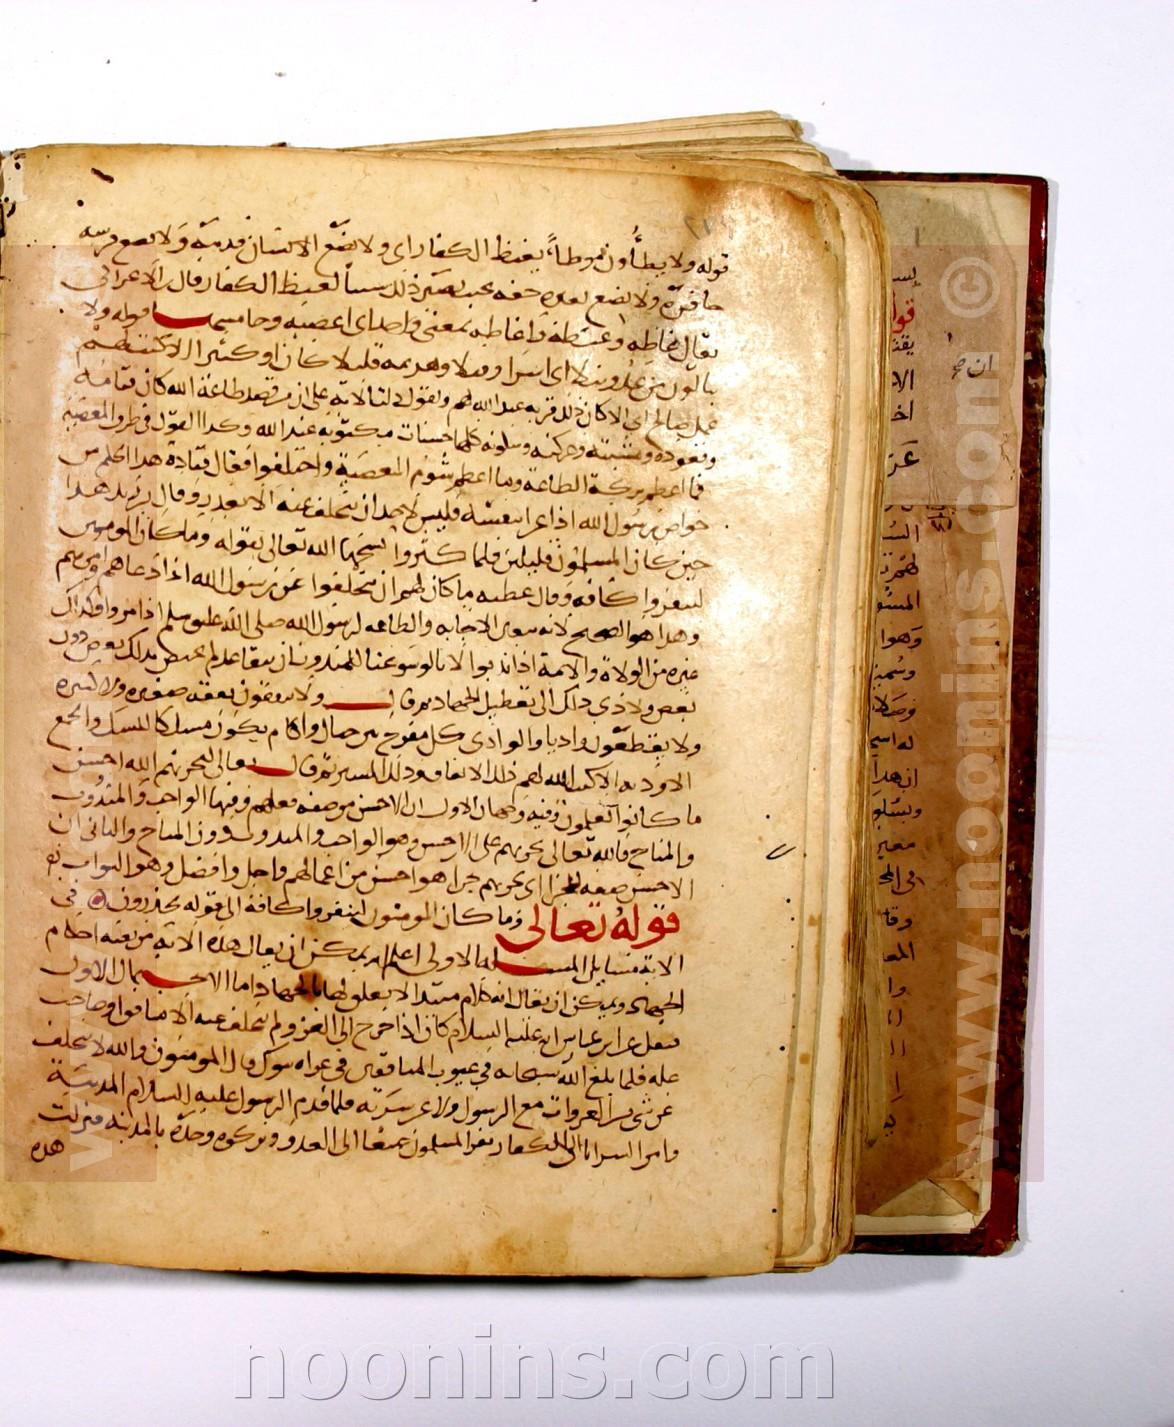 قوله ولا يطأون موطأ يغيظ الكفار اى ولا يضع الانسان قدمه ولا يضع فرسه
حافره ولا يضع بعيره خفه بحيث يصير ذلك سببا لغيظ الكفار قال ابن الاعرابى
يقال غاظه وغيظه واغاظه بمعنى واحد اى اغضبه وخامسها قوله ولا
ينالون من عدو نيلا اى اسرا وقتلا وهزيمة قليلا كان او كثيرا الا كتب لهم به
عمل صالح اى الا كان ذلك قربة عند الله لهم ونقول دلت الاية على ان من قصد طاعة الله كان قيامه
وقعوده ومشيته وحركته وسكونه كلها حسنات مكتوبة عند الله وكذا القول فى طرف المعصية
فما اعظم بركة الطاعة وما اعظم شوم المعصية واختلفوا فقال قتادة هذا الحكم من
خواص رسول الله اذا غزا بنفسه فليس لاحد ان يتخلف عنه الا بعذر وقال ابن زيد هذا
حين كان المسلمون قليلين فلما كثروا نسخها الله تعالى بقوله وما كان المومنون
لينفروا كافة وقال عطية ما كان لهم ان يتخلفوا عن رسول الله اذا دعاهم وامرهم
وهذا هو الصحيح لانه تعين الاجابة والطاعة لرسول الله صلى الله عليه وسلم اذا امر وكذلك
غيره من الولاة والائمة اذا ندبوا لانا لو سوغنا للمندوب ان يتقاعد لم يختص بذلك بعض دون
بعض ولادى ذلك الى تعطيل الجهاد ثم قال ولا ينفقون نفقة صغيرة ولا كبيرة
ولا يقطعون واديا والوادى كل مفرج بين جبال واكام يكون مسلكا للسيل والجمع
الاودية الا كتب الله لهم ذلك الانفاق وذلك المسير ثم قال تعالى ليجزيهم الله احسن
ما كانوا يعملون وفيه وجهان الاول ان الاحسن من صفة فعلهم وفيها الواجب والمندوب
والمباح فالله تعالى يجزيهم على الاحسن وهو الواجب والمندوب دون المباح والثانى ان
الاحسن صفة للجزا اى يجزيهم جزا هو احسن من اعمالهم واجل وافضل وهو الثواب
قوله تعالى وما كان المومنون لينفروا كافة الى قوله يحذرون فى
الاية مسايل المسلة الاولى اعلم انه يمكن ان يقال هذه الاية من بقية احكام
الجهاد ويمكن ان يقال انه كلام مبتدا لا تعلق لها بالجهاد اما الاحتمال الاول
فنقل عن ابن عباس انه عليه السلام كان اذا خرج الى الغزو لم يتخلف عنه الا منافق او صاحب
علة فلما بلغ الله سبحانه فى عيوب المنافقين فى غزاة تبوك قال المومنون والله لا نتخلف
عن شى من الغزوات مع الرسول ولا عن سرية فلما قدم الرسول عليه السلام المدينة
وامر السرايا الى الكفار نفر المسلمون جميعا الى العدو وتركوه وحده بالمدينة فنزلت
هذه
قوله
ان صح
www.noonins.com ©
noonins.com